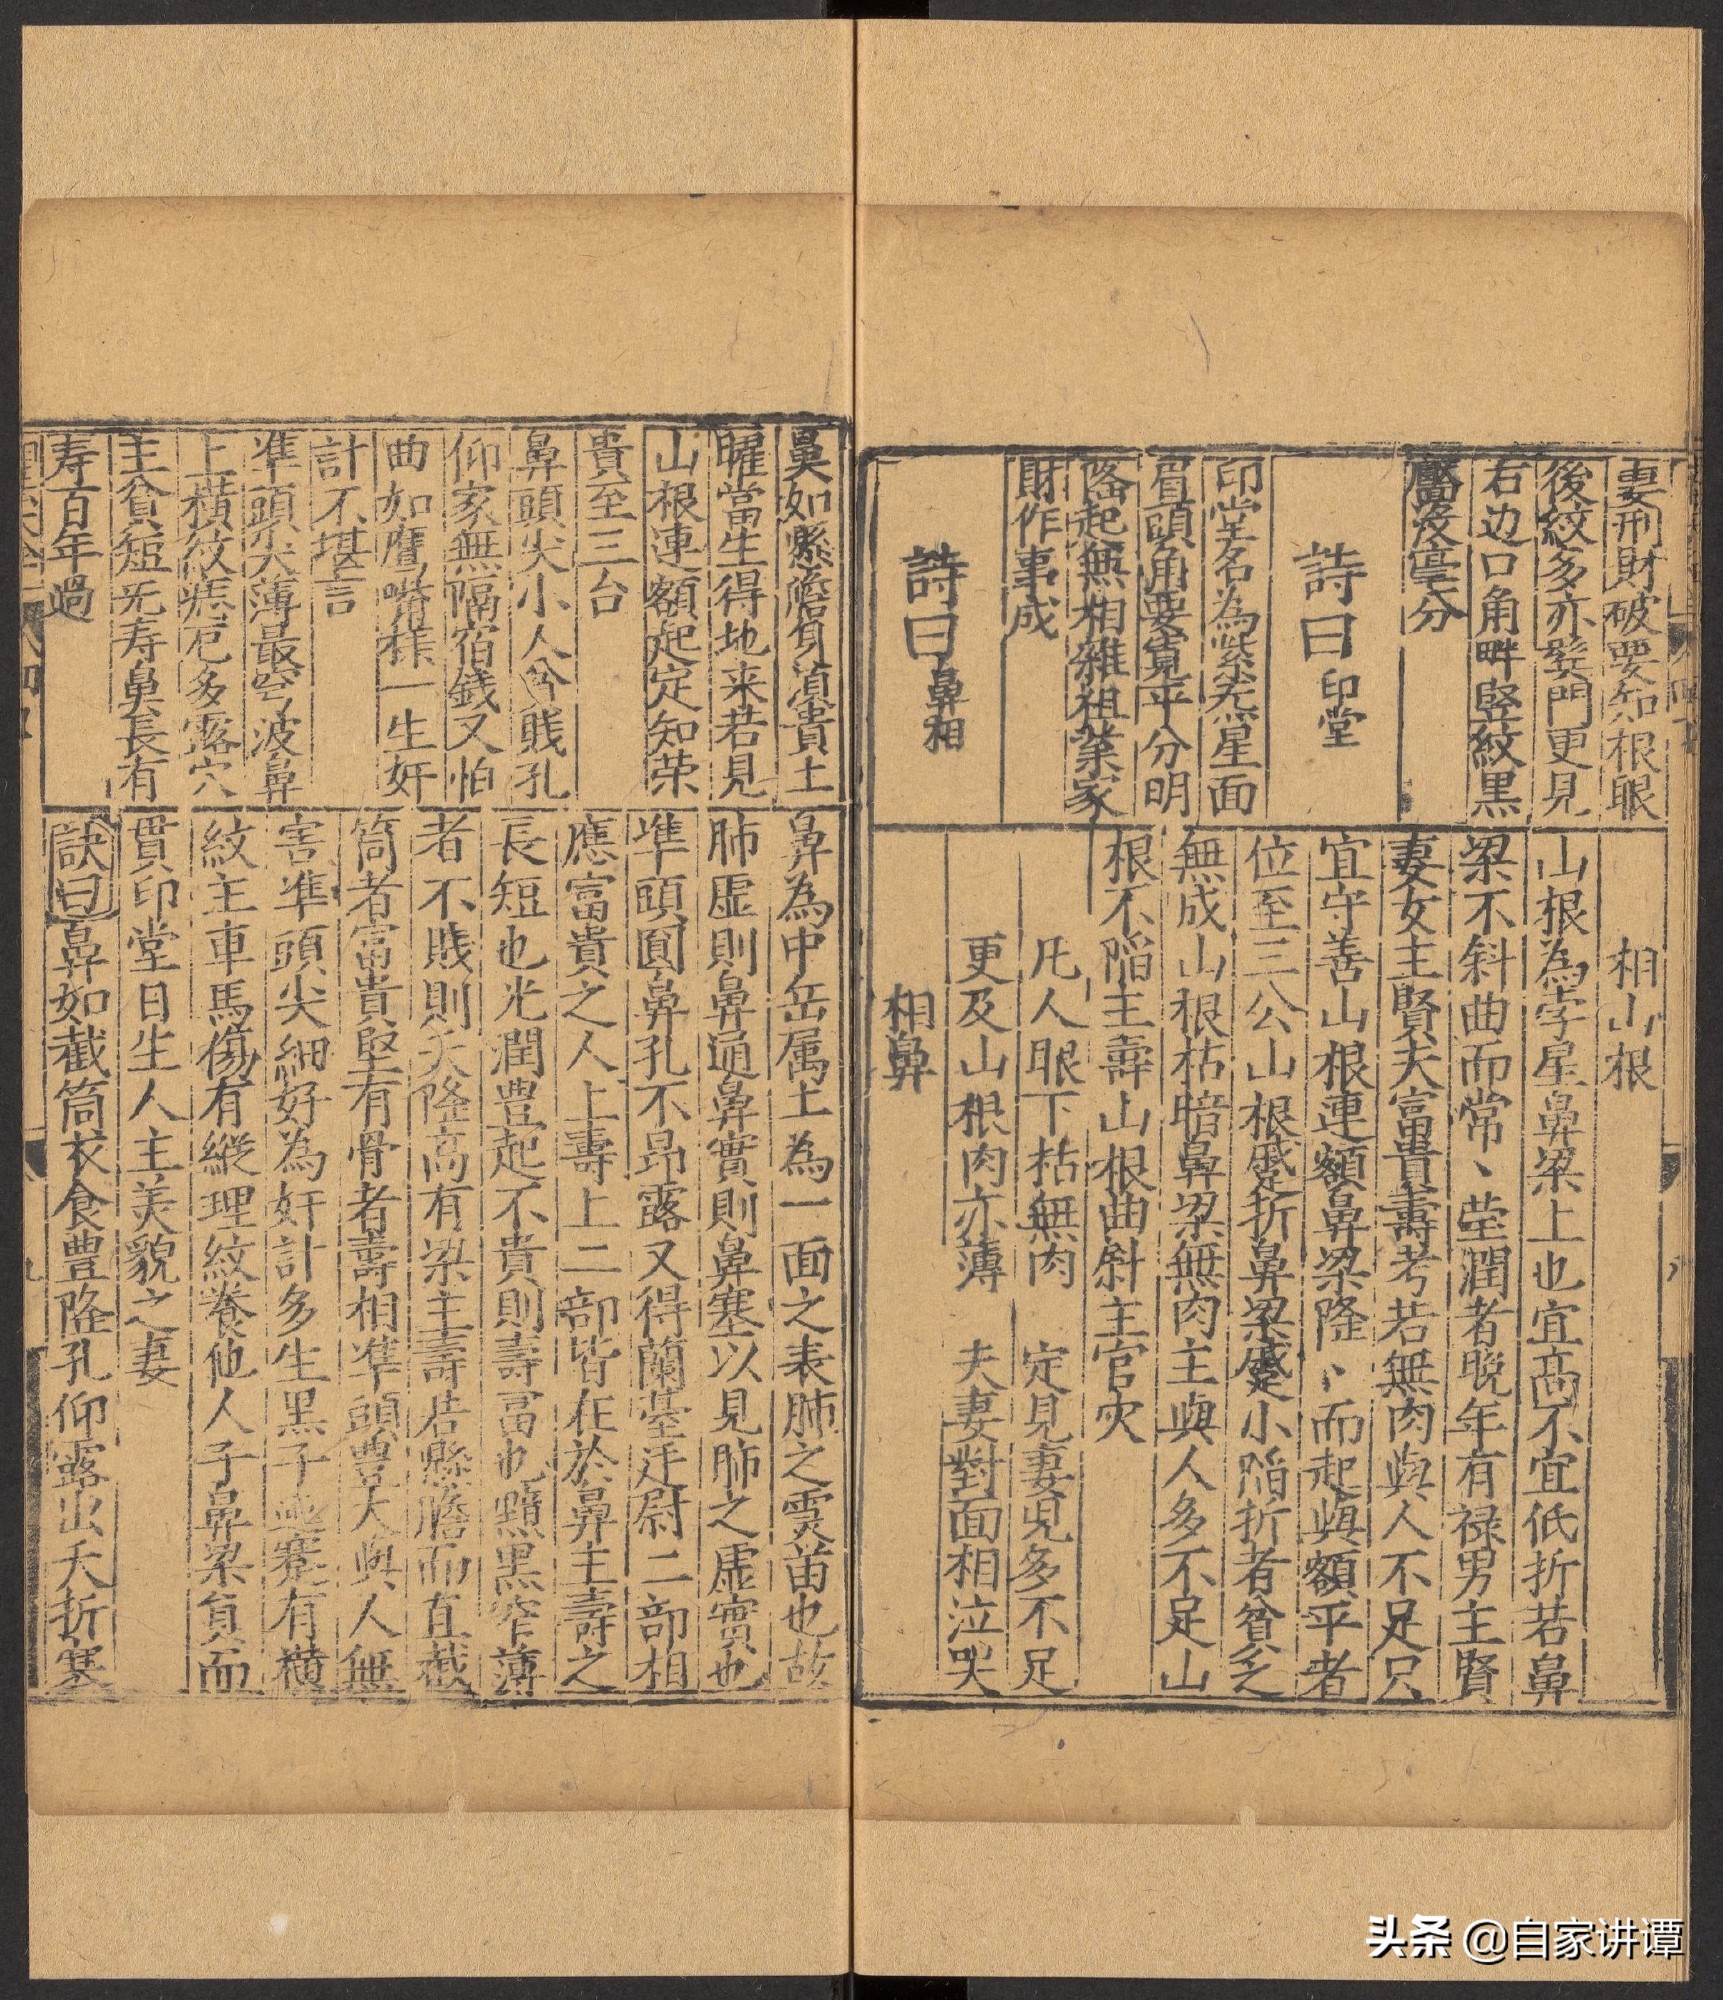 妻刑財破要知根眼
後紋多亦奸門更見
右边口角畔竪紋黒
黶沒毫分
詩曰印堂
印堂名為紫炁星面
眉頭角要寬平分明
隆起無相雜祖業家
財作事成
詩曰鼻相
相山根
山根為孛星鼻梁上也宜高不宜低折若鼻
梁不斜曲而常丶莹潤者晚年有禄男主賢
妻女主賢夫富貴壽考若無肉與人不足只
宜守善山根連額鼻梁隆丶而起與額平者
位至三公山根蹙折鼻梁蹙小陷折者貧乏
無成山根枯暗鼻梁無肉主與人多不足山
根不陷主壽山根曲斜主官灾
凡人眼下枯無肉　定見妻兒多不足
更及山根肉亦薄　夫妻對面相泣哭
相鼻
鼻如懸膽負須貴土
曜當生得地来若見
山根連額起定知荣
貴至三台
鼻頭尖小人兮賤孔
仰家無隔宿錢又怕
曲如鷹嘴様一生奸
計不堪言
凖頭尖薄最窮波鼻
上横紋痣厄多露穴
主貧短死寿鼻長有
寿百年過
鼻為中岳属土為一面之表肺之霛苗也故
肺虚則鼻通鼻實則鼻塞以見肺之虚實也
凖頭圓鼻孔不昻露又得蘭薹迋尉二部相
應富貴之人上壽上二部皆在於鼻主壽之
長短也光潤豊起不貴則壽冨也黯黒窄薄
者不賎則夭隆高有梁主壽若懸膽而直截
筒者富貴堅有骨者壽相凖頭豊大與人無
害凖頭尖細好為奸計多生黒子迍蹇有横
紋主車馬傷有縱理紋養他人子鼻梁負而
貫印堂日生人主美貌之妻
訣曰鼻如截筒衣食豊隆孔仰露出夭折寒
头条 @自家讲谭